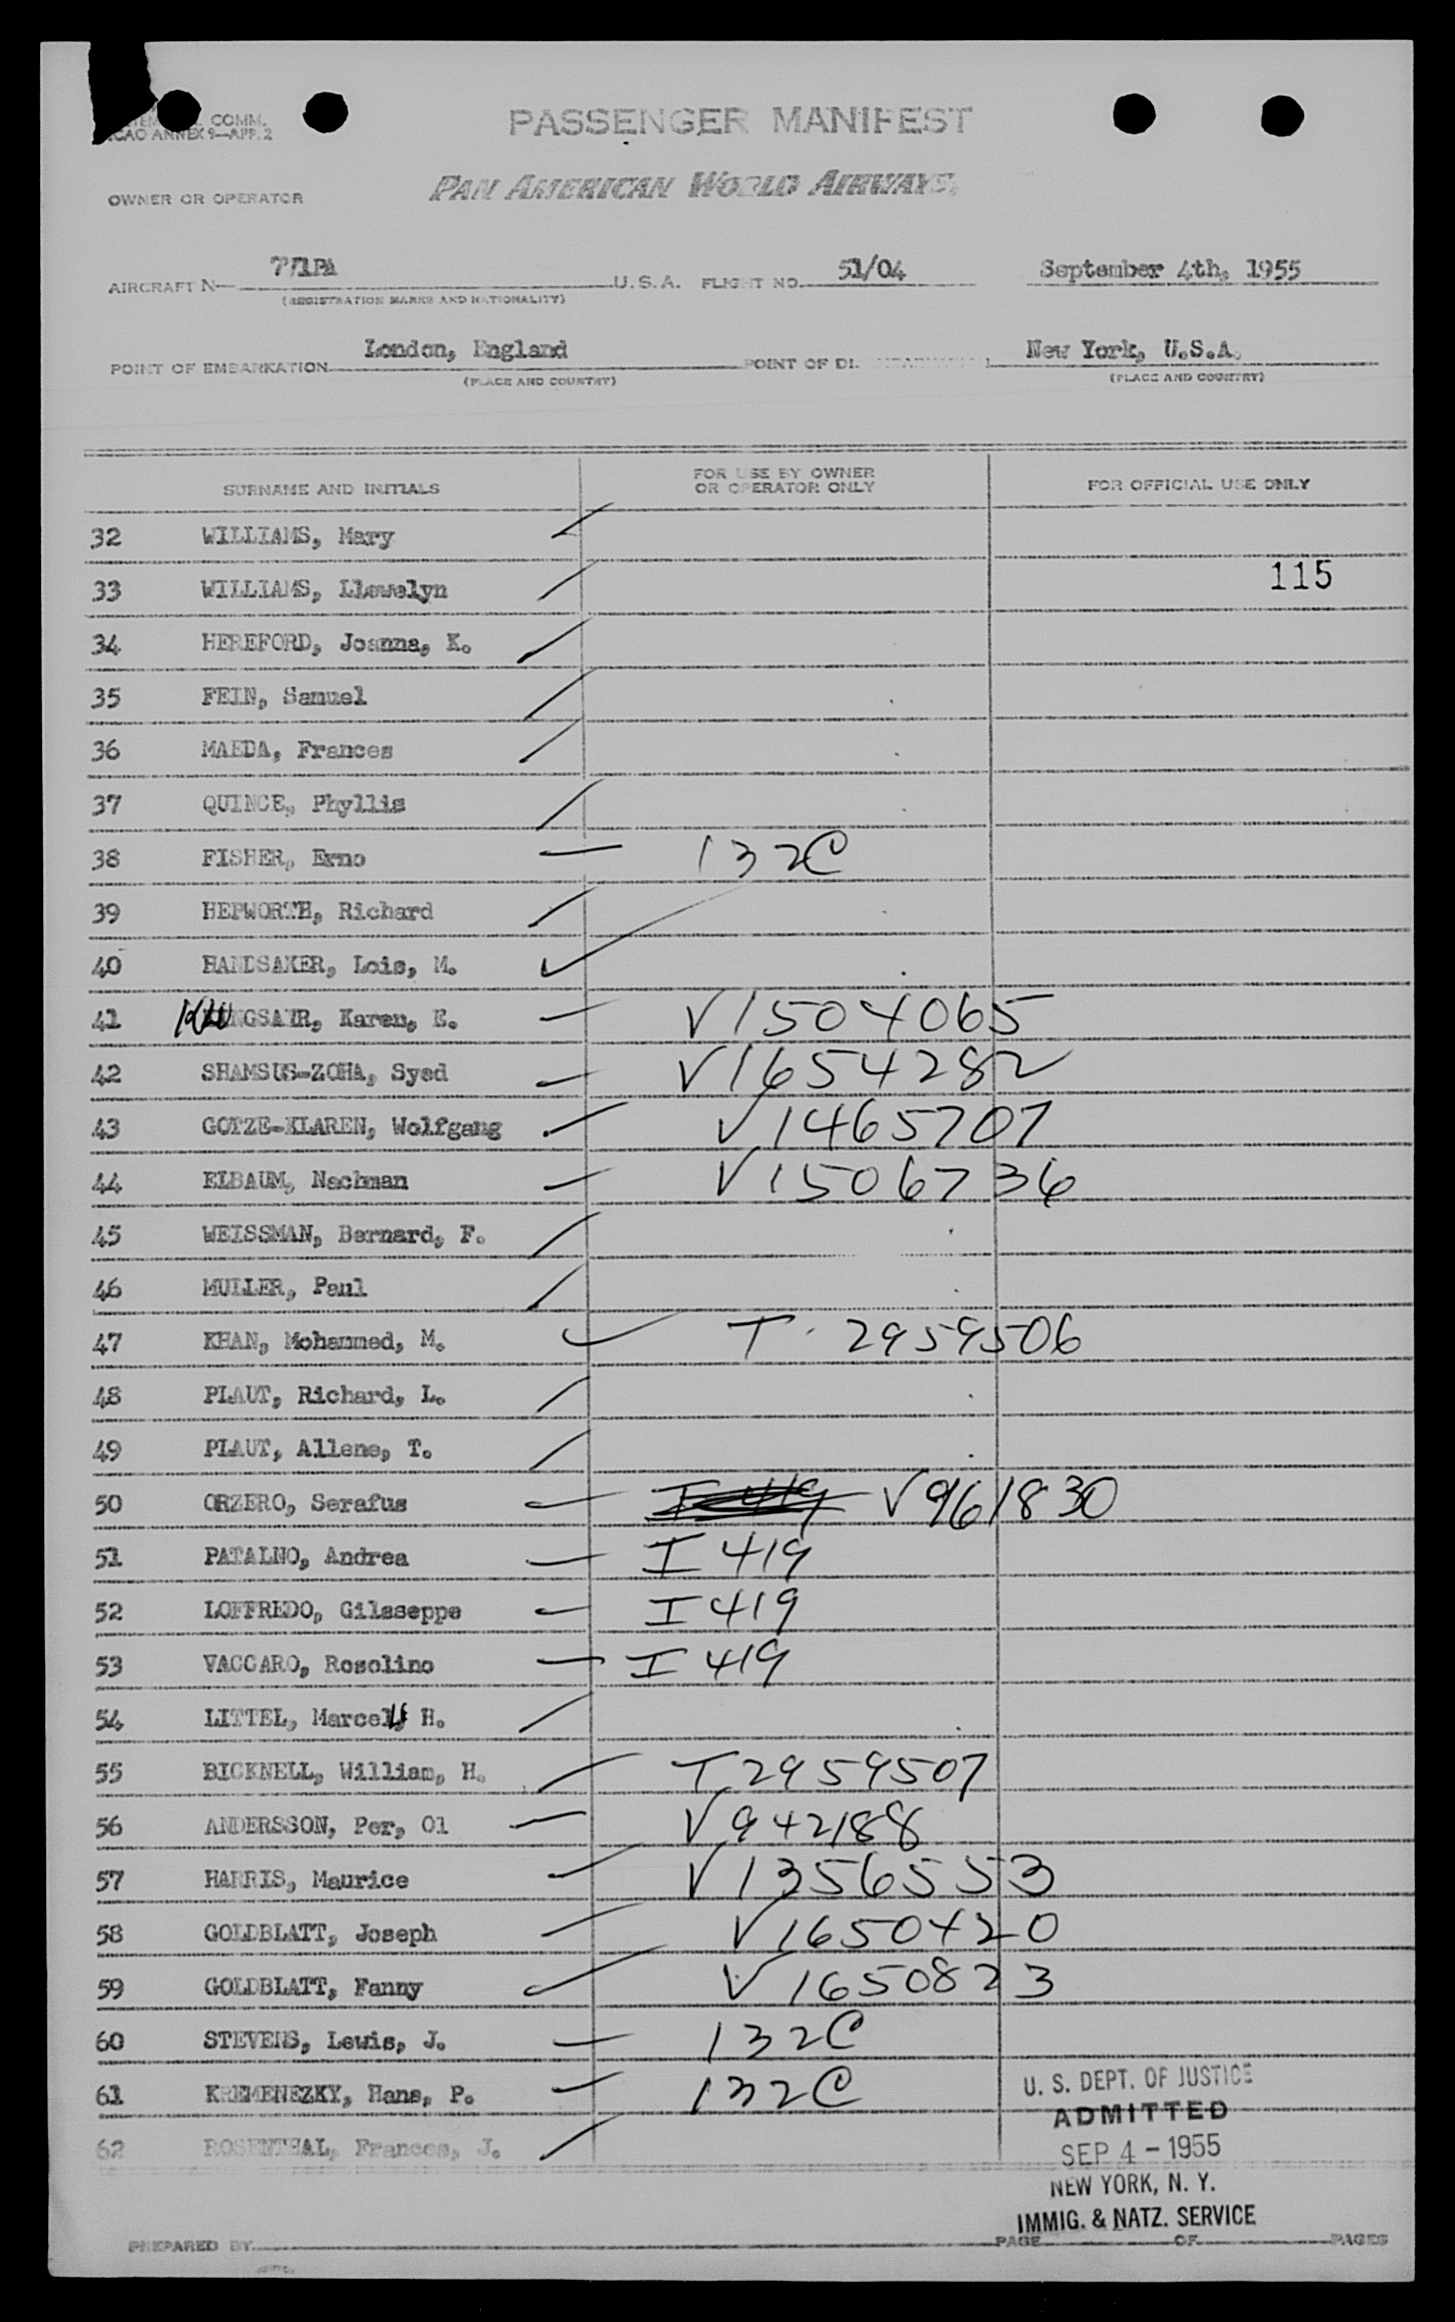 COMM.
ICAO ANNEX 9—APP. 2
PASSENGER MANIFEST
OWNER OR OPERATOR PAN AMERICAN WORLD AIRWAYS,
AIRCRAFT N— U.S.A. FLIGHT NO. 51/04 September 4th, 1955
(REGISTRATION MARKS AND NATIONALITY)
POINT OF EMBARKATION London, England POINT OF New York, U.S.A.
(PLACE AND COUNTRY) (PLACE AND COUNTRY)
SURNAME AND INITIALS FOR USE BY OWNER OR OPERATOR ONLY FOR OFFICIAL USE ONLY
32 WILLIAMS, Mary
33 WILLIAMS, Llewelyn 115
34 HEREFORD, Joanna, K.
35 FEIN, Samuel
36 MAEDA, Frances
37 QUINCE, Phyllis
38 FISHER, Erno 132C
39 HEPWORTH, Richard
40 HANDSAKER, Lois, M.
41 Karen, E. V1504065
42 SHAMSUS-ZOHA, Syed V1654282
43 GOTZE-KLAREN, Wolfgang V1465707
44 ELBAUM, Nachman V1506736
45 WEISSMAN, Bernard, F.
46 MULLER, Paul
47 KHAN, Mohammed, M. T. 2959506
48 PLAUT, Richard, L.
49 PLAUT, Allene, T.
50 ORZERO, Serafus I 419 V961830
51 PATALNO, Andrea I 419
52 LOFFREDO, Gilsseppe I 419
53 VACCARO, Rosolino I 419
54 LITTEL, Marcell H.
55 BICKNELL, William, H. T2959507
56 ANDERSSON, Per, Ol V942188
57 HARRIS, Maurice V1356553
58 GOLDBLATT, Joseph V1650420
59 GOLDBLATT, Fanny V1650823
60 STEVENS, Lewis, J. 132C
61 KREMENEZKY, Hans, P. 132C
62 ROSENTHAL, Frances, J.
U. S. DEPT. OF JUSTICE
ADMITTED
SEP 4 - 1955
NEW YORK, N. Y.
IMMIG. & NATZ. SERVICE
PREPARED BY PAGE OF PAGES